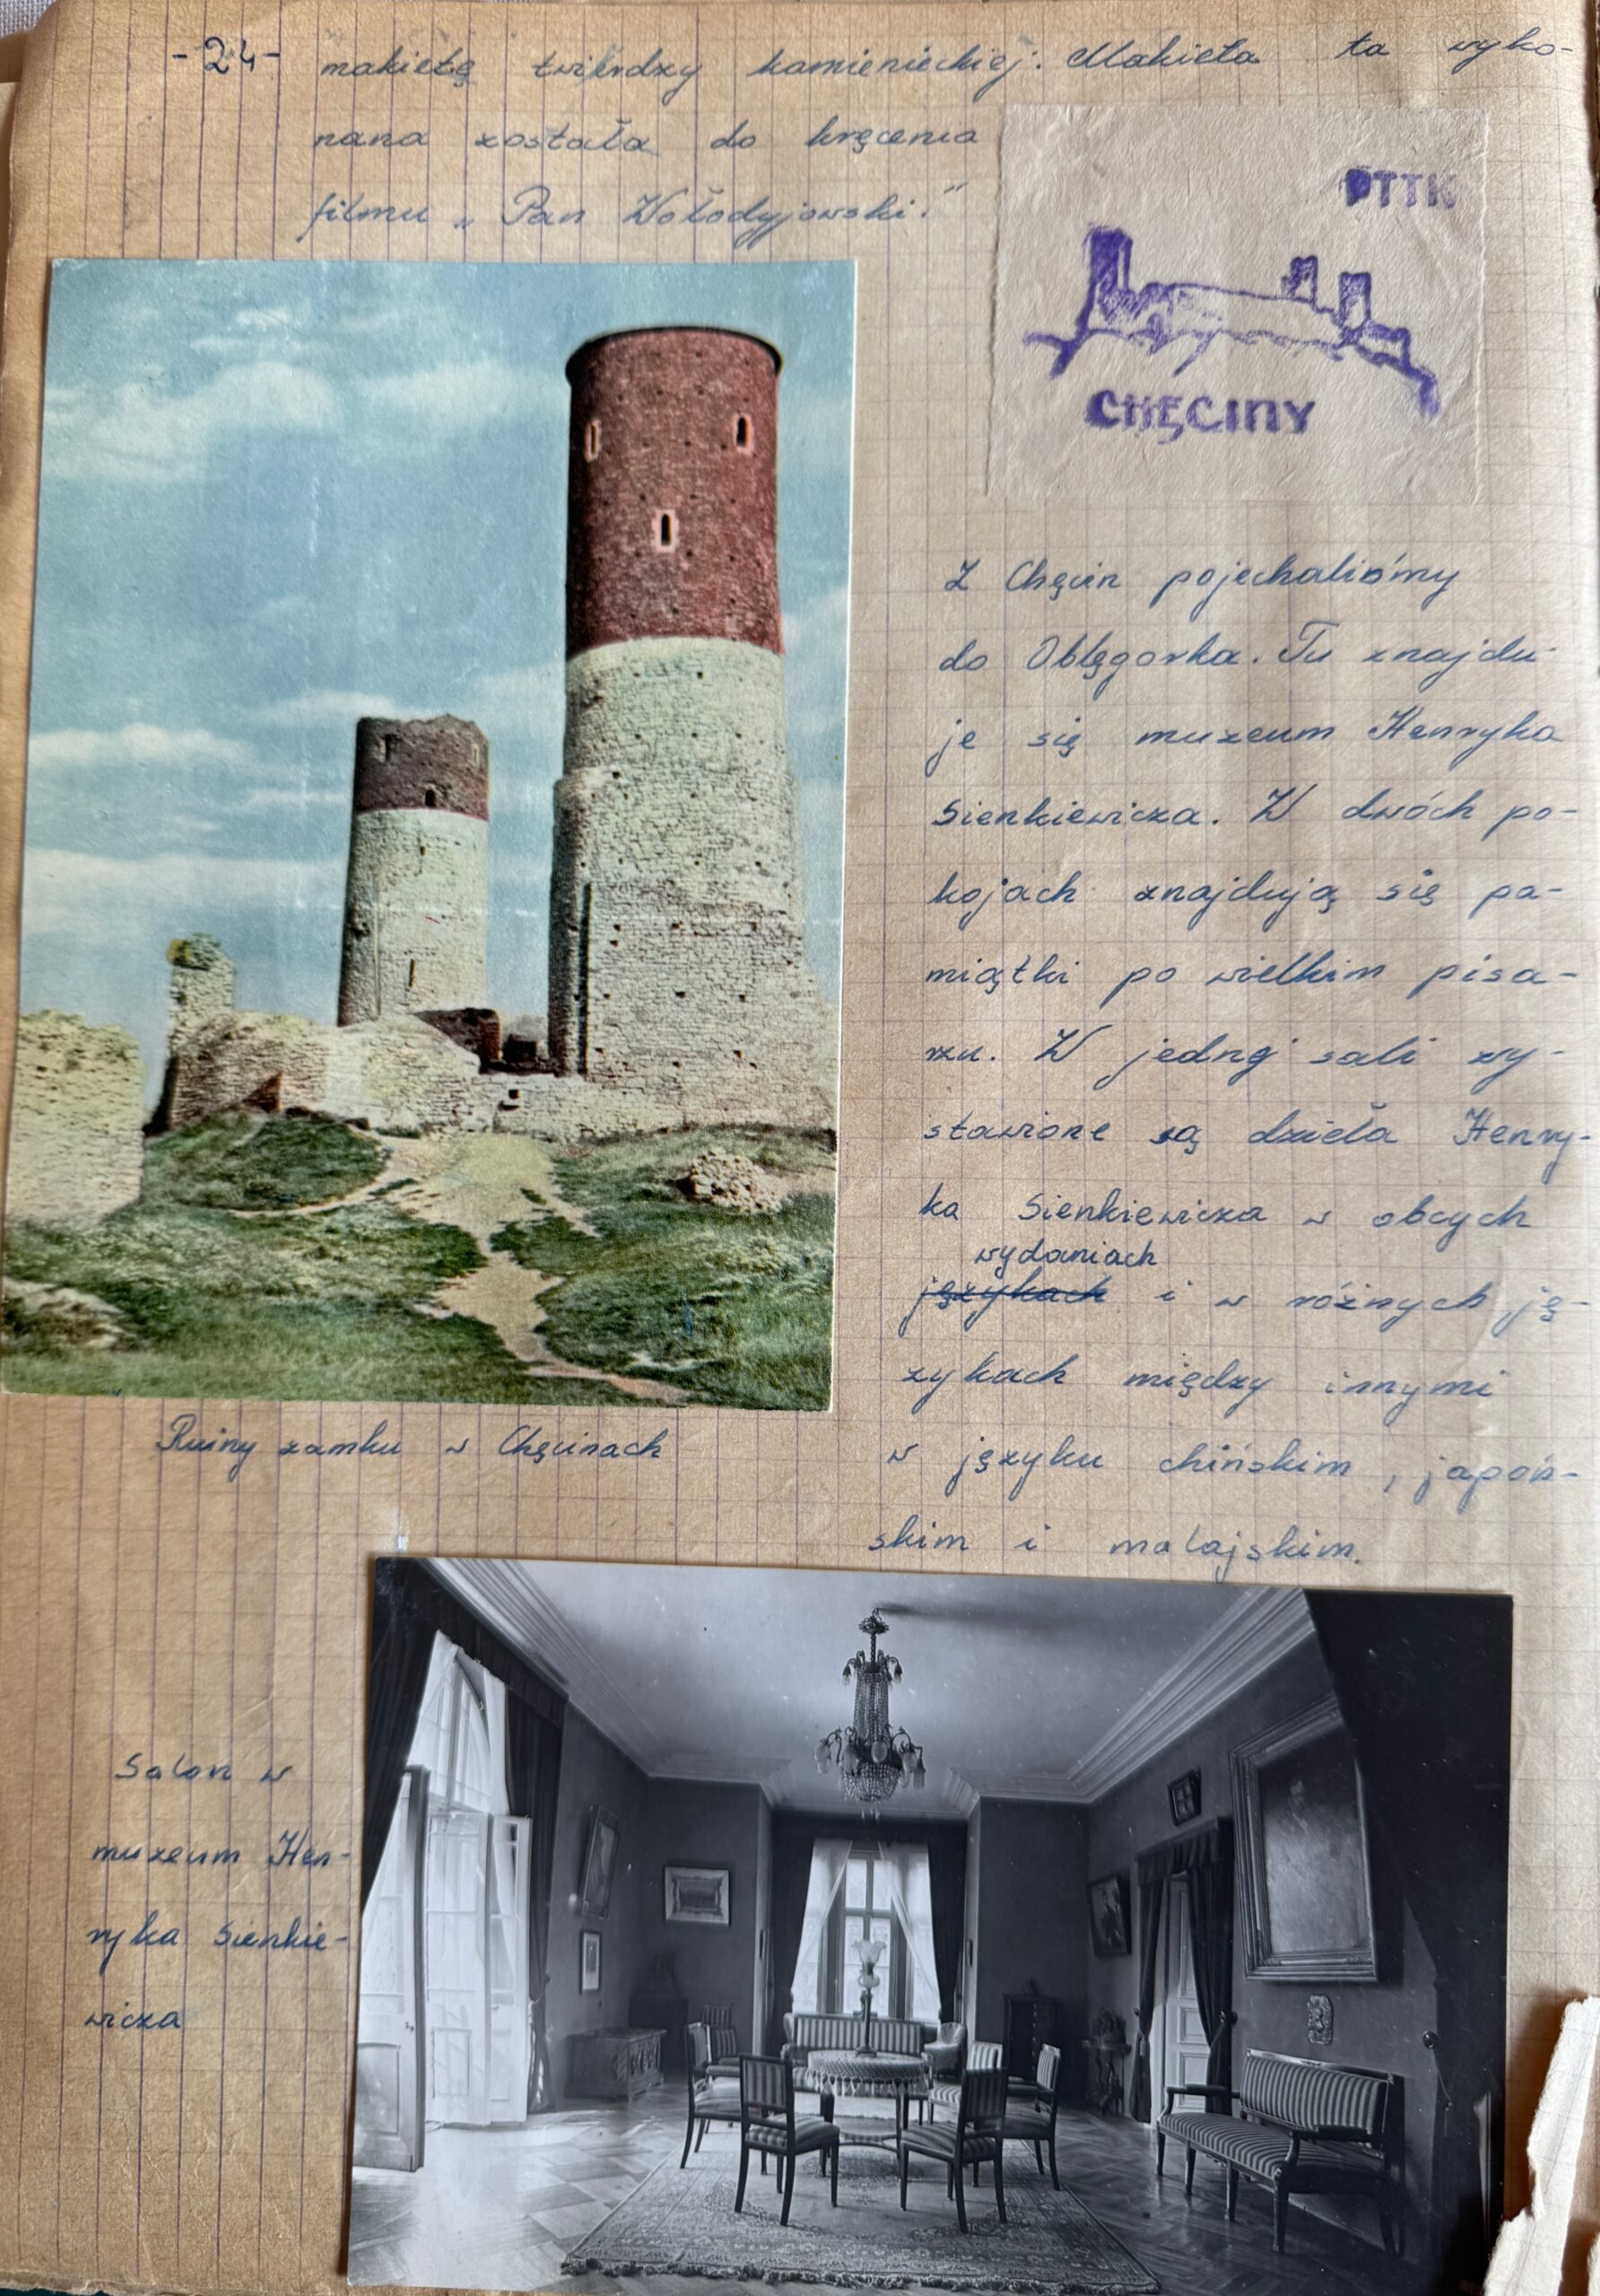 -24- makietę twierdzy kamienieckiej. Makieta ta wyko-
nana została do kręcenia
filmu „Pan Wołodyjowski."
PTTK
CHĘCINY
Z Chęcin pojechaliśmy
do Oblęgorka. Tu znajdu-
je się muzeum Henryka
Sienkiewicza. W dwóch po-
kojach znajdują się pa-
miątki po wielkim pisa-
rzu. W jednej sali wy-
stawione są dzieła Henry-
ka Sienkiewicza w obcych
wydaniach
językach i w różnych ję-
zykach między innymi
w języku chińskim, japoń-
skim i malajskim.
Ruiny zamku w Chęcinach
Salon w
muzeum Hen-
ryka Sienkie-
wicza